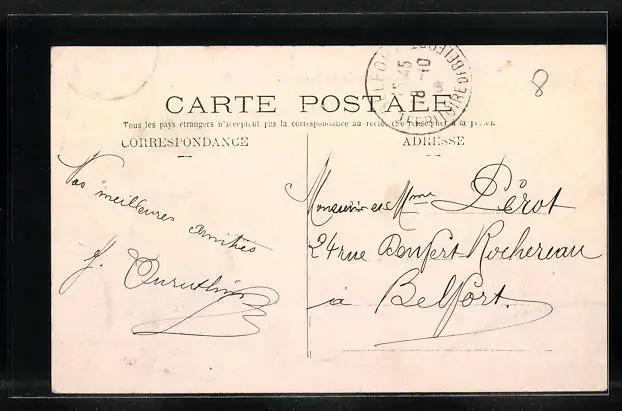 CARTE POSTALE
Tous les pays étrangers n'acceptent pas la correspondance au recto. (Se renseigner à la Poste).
CORRESPONDANCE
ADRESSE
Nos meilleures amitiés
J.
Monsieur et Mme Pérot
24 rue Denfert Rochereau
à Belfort.
BELFORT
TERRITOIRE DE BELFORT
45
8 -10
8